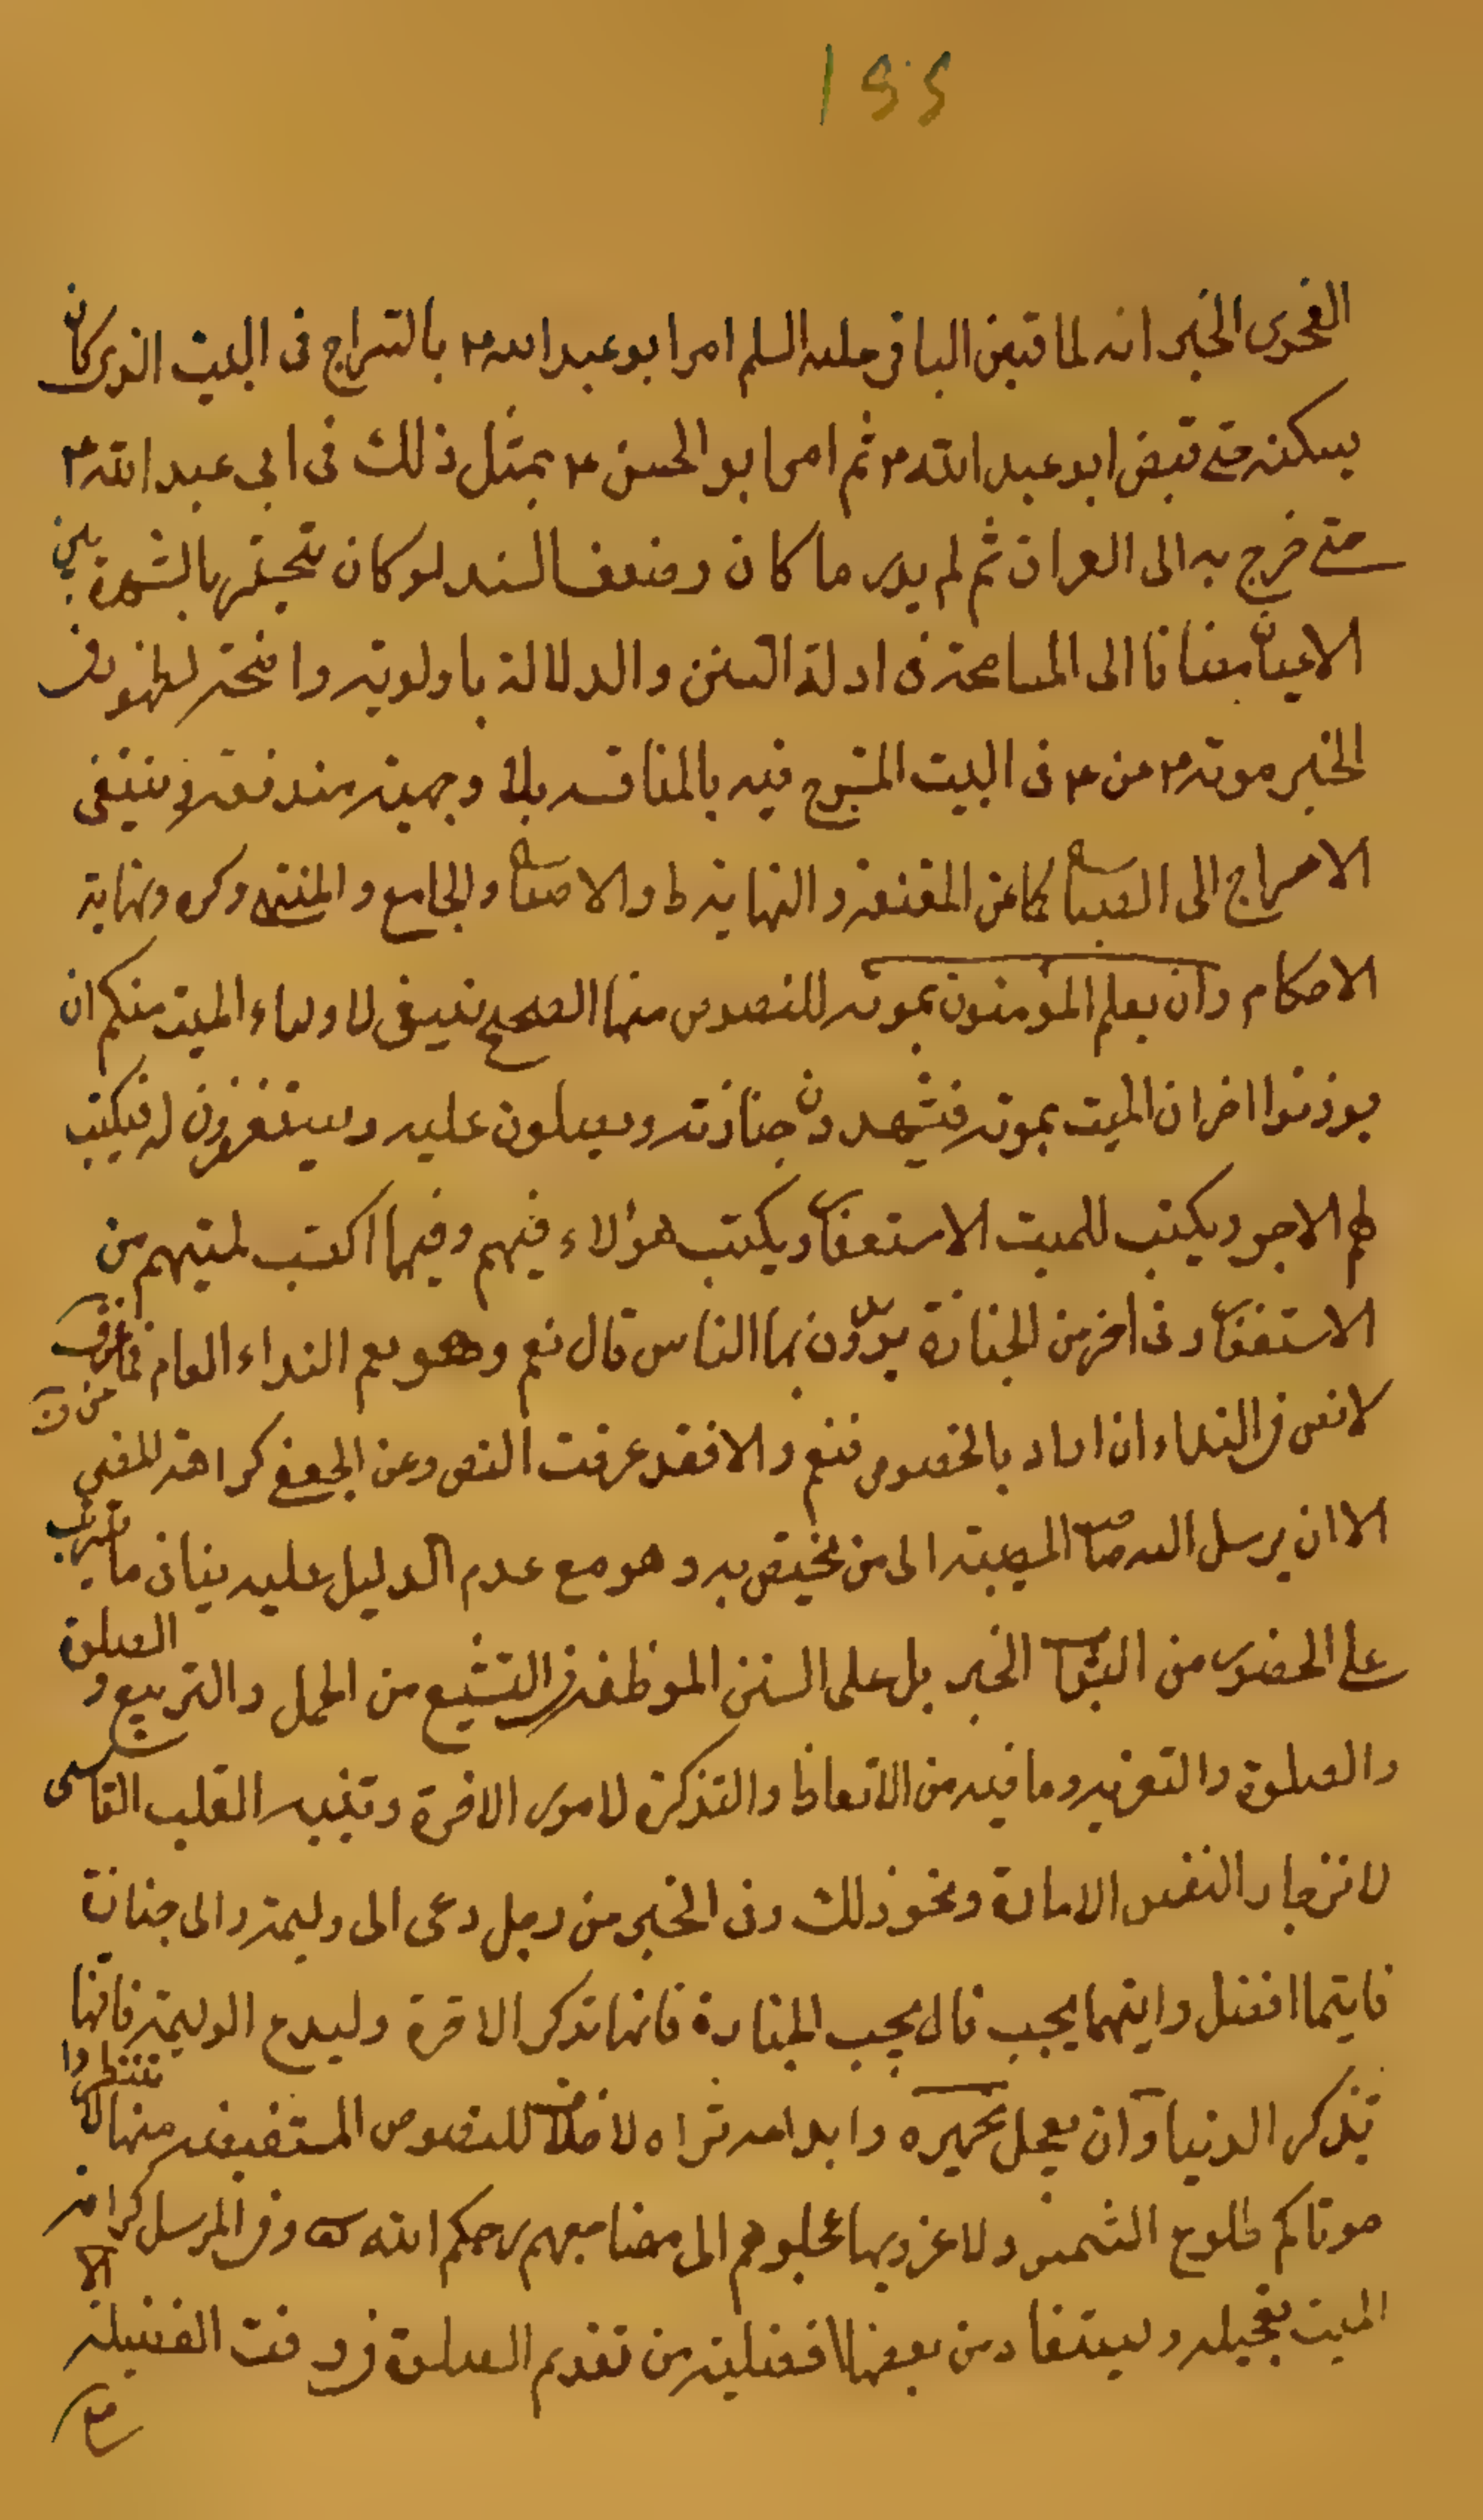 ١٥٥
الفحوى الخبر انه لما قبض الباقر عليه السلم امر ابو عبد الله ع بالسراج فى البيت الذى كان
يسكنه حتى قبض ابو عبد الله ع ثم امر ابو الحسن ع بمثل ذلك فى ابى عبد الله ع
حتى خرج به الى العراق ثم لم يدر ما كان وضعف السند لو كان منجبر بالشهرة بين
الاعيان مضافا الى المسامحة فى ادلة السنن والدلالة باولويته واضحة لظهور
الخبر موته ع فى البيت المسرج فيه بالمناقشة بلا وجهية مندفعة فينبغى
الاسراج الى الصباح كما عن المقنعة والنهاية ط والاصباح والجامع والمنتهى وكره ونهاية
الاحكام وان يعلم المؤمنون بموته للنصوص منها الصحيح ينبغى لاولياء الميت منكم ان
يوذنوا اخوان الميت بموته فيشهدون جنازته ويصلون عليه ويستغفرون له فيكتب
لهم الاجر ويكتب للميت الاستغفا ويكتب هؤلاء فيهم وفيما اكتب لميتهم من
الاستغفا وفى اخر من الجنازة يوذن بها الناس قال نعم وهو يعم النداء العام فما عن ف من ان
لا نص فى النداء ان اراد بالخصوص فنعم والا فقد عرفت النص وعن الجعفى كراهة النعى
الا ان يرسل اليه صا المصيبة الى من يختص به وهو مع عدم الدليل عليه ينافى ما يترتب
على الحضور من الثوا الخبر بل على السنن الموظفة فى التشيع من الحمل والتربيع و الصلوة
والصلوة والتعزية وما فيه من الاتعاظ والتذكرة لامور الاخرة وتنبيه القلب القاسى
لانزجار النفس الامارة ونحو ذلك وفى الخبر من رجل دعى الى وليمة والى جنازة
فايتهما افضل وايتهما يجب قال يجب الجنازة فانها تذكر الاخرة وليدع الوليمة فانها
تذكر الدنيا وان يعجل تجهيزه للنصوص المستفيضة منها لا تنتظروا
موتاكم طلوع الشمس ولا غروبها عجلوهم الى مضاجعهم رحمكم الله وفى المرسل كرامة
الميت تعجيله ويستفاد من بعضها افضليته من تقديم الصلوة فى وقت الفضيلة